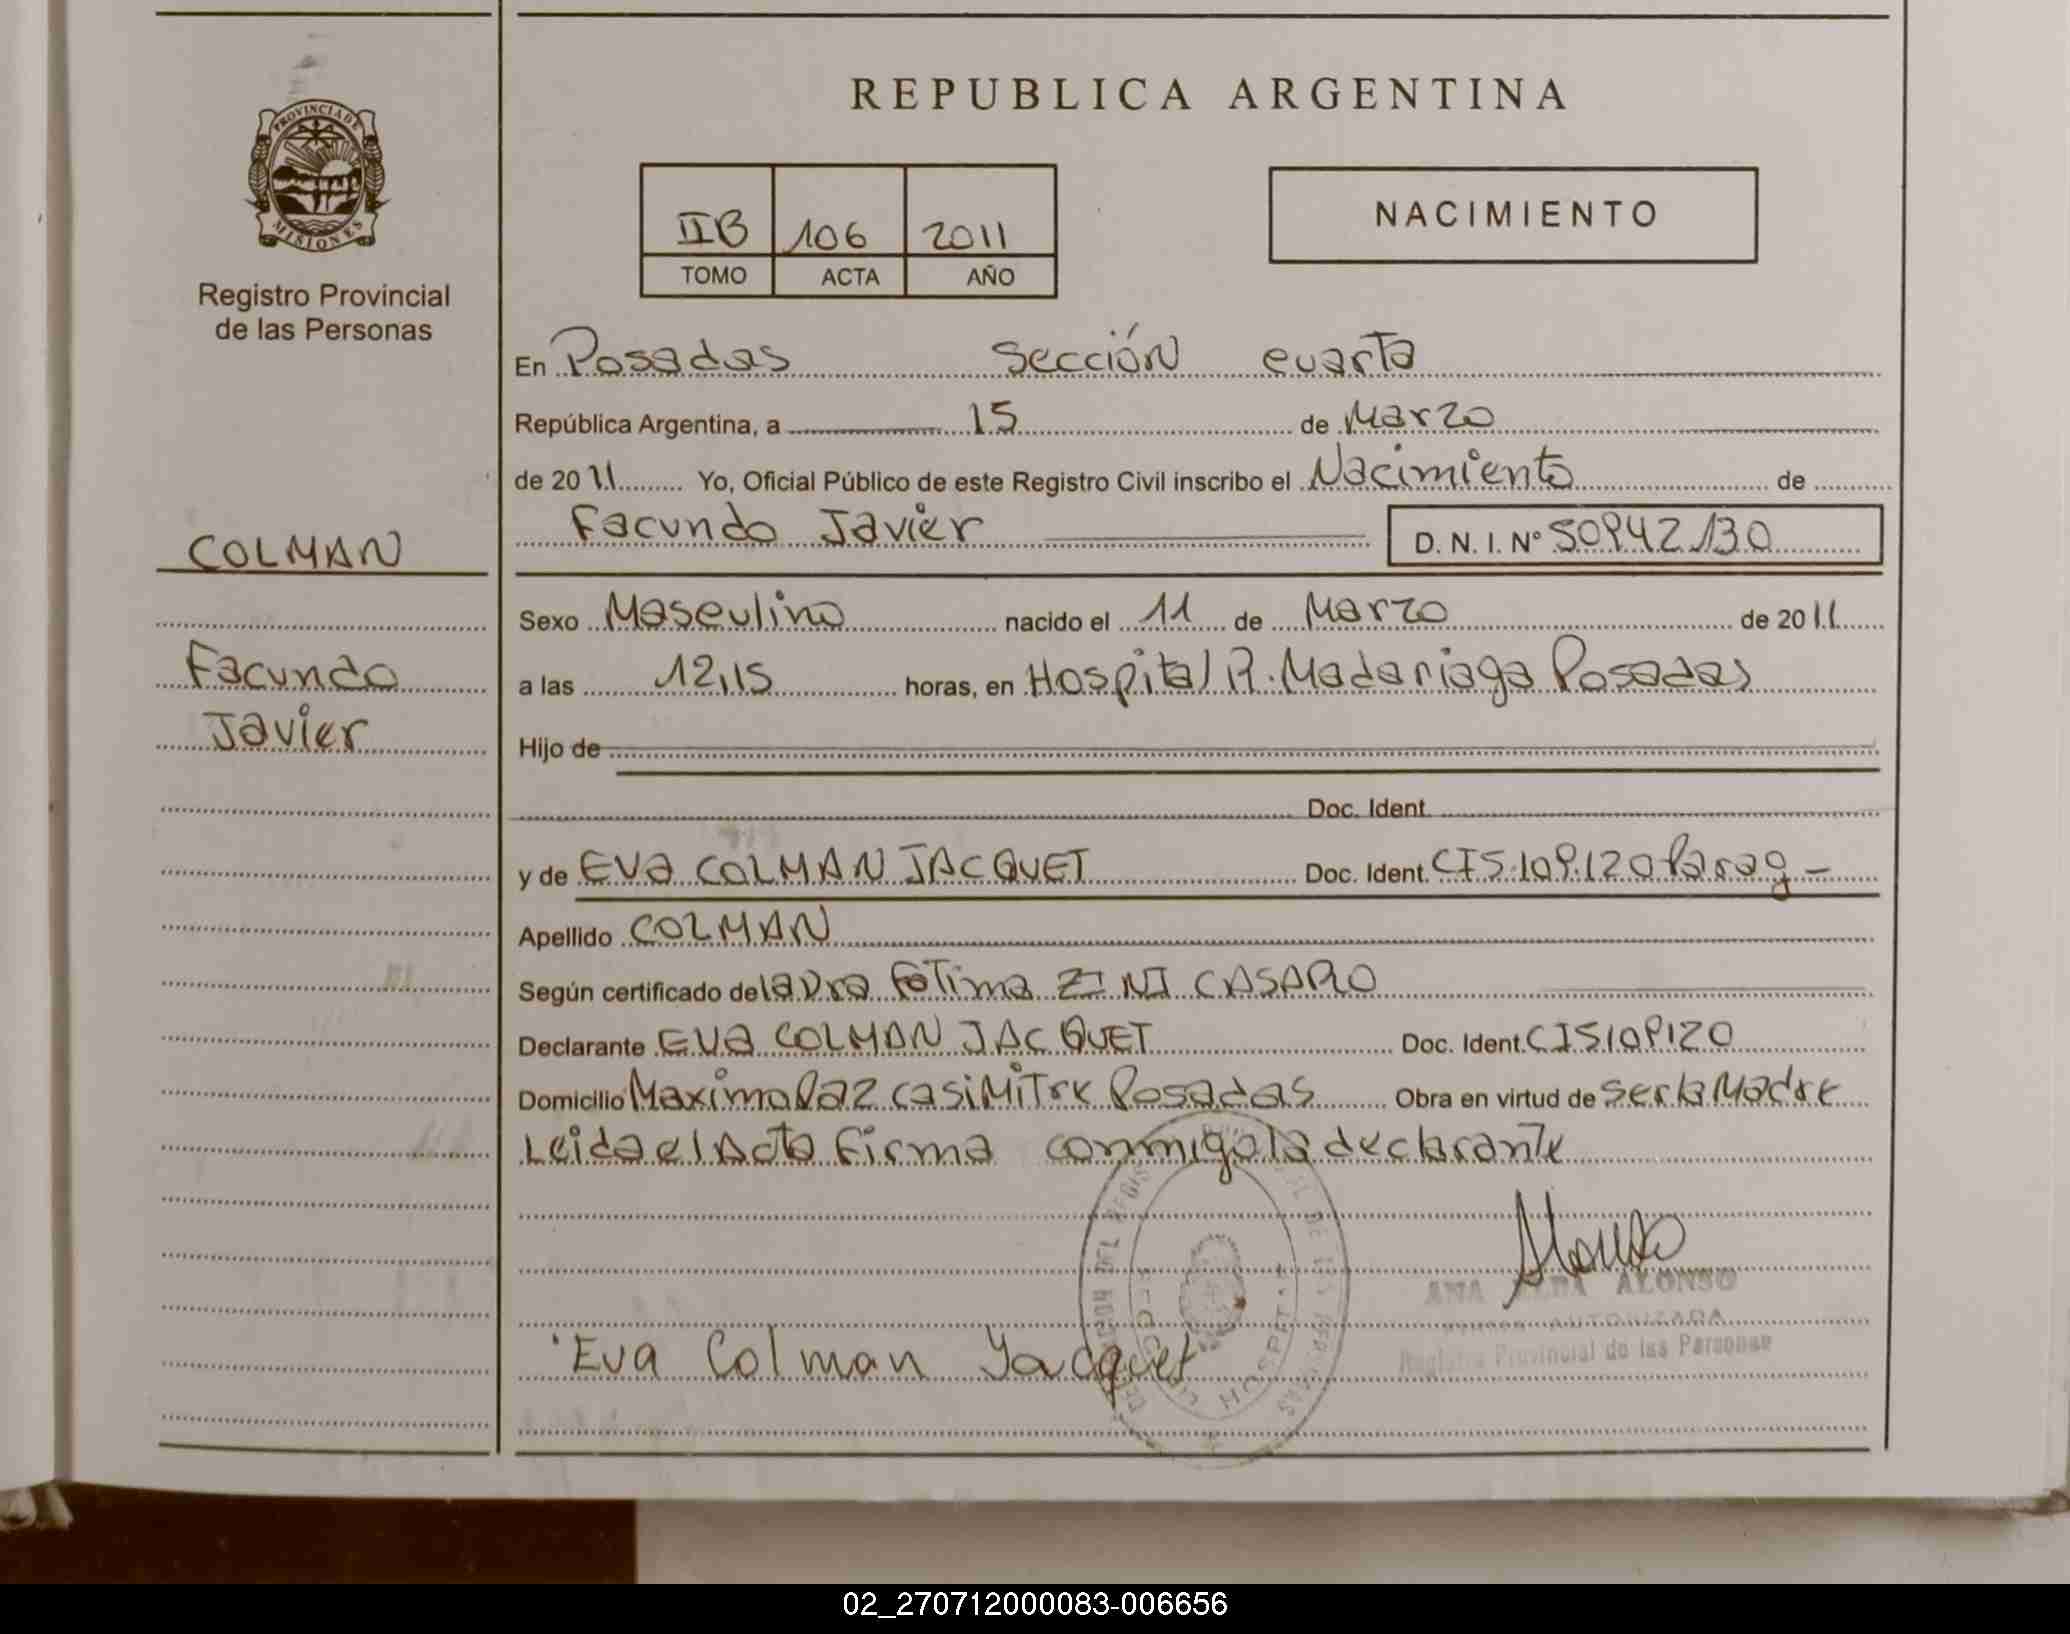 REPUBLICA ARGENTINA
PROVINCIA DE
MISIONES
Registro Provincial
de las Personas
IIB 106 2011
TOMO ACTA AÑO
NACIMIENTO
En Posadas Sección cuarta
República Argentina, a 15 de Marzo
de 2011 Yo, Oficial Público de este Registro Civil inscribo el Nacimiento de
Facundo Javier D. N. I. Nº 50942130
COLMAN
Facundo
Javier
Sexo Masculino nacido el 11 de Marzo de 2011
a las 12,15 horas, en Hospital R. Madariaga Posadas
Hijo de
Doc. Ident.
y de Eva COLMAN JACQUET Doc. Ident. CI5.109.120 Parag-
Apellido COLMAN
Según certificado de la Dra Fátima ZINI CASARO
Declarante EVA COLMAN JACQUET Doc. Ident. CI5109120
Domicilio Maximo Paz casi Mitre Posadas Obra en virtud de ser la Madre
Leida el Acta Firma conmigo la declarante
Alonso
ANA ALONSO
AUTORIZADA
Registro Provincial de las Personas
Eva Colman Yacquet
HOSPITAL
02_270712000083-006656